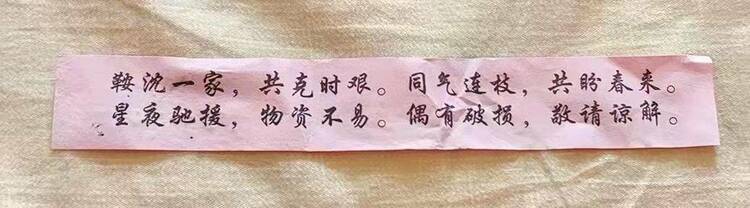 鞍沈一家，共克时艰。同气连枝，共盼春来。
星夜驰援，物资不易。偶有破损，敬请谅解。